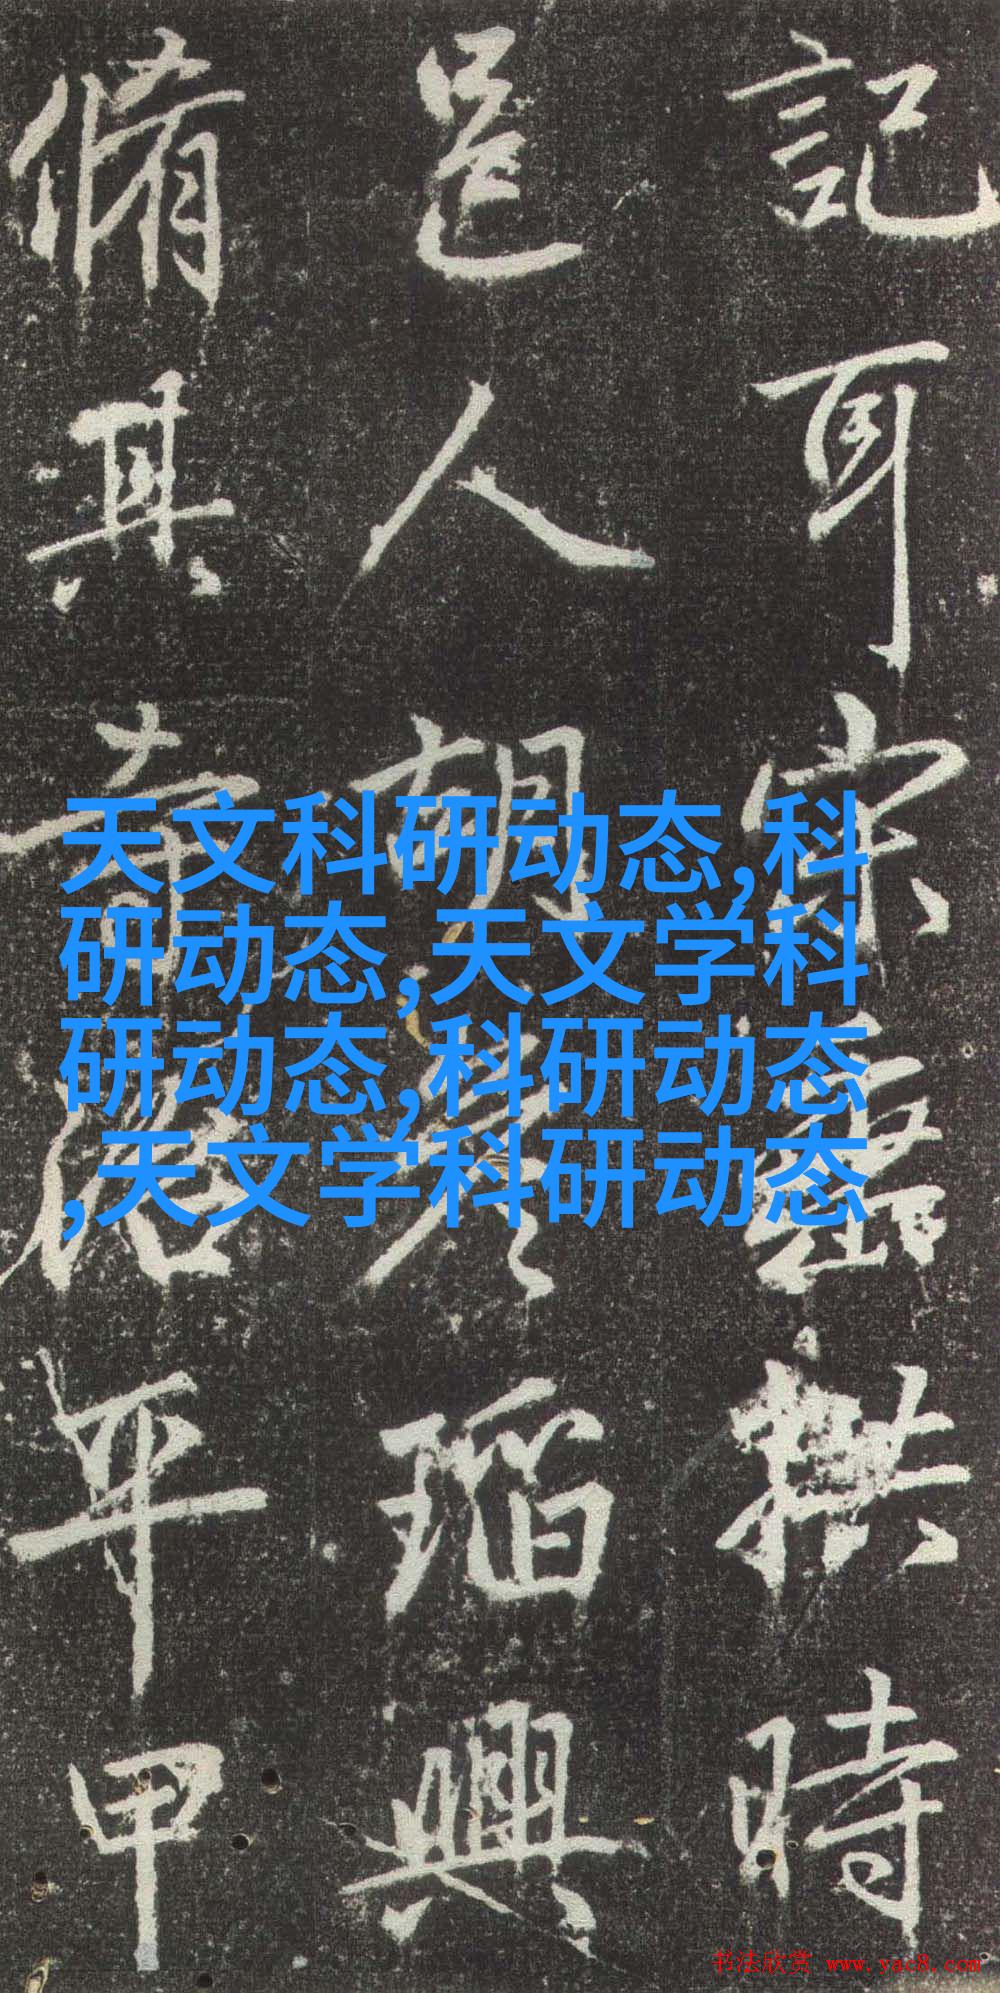 記耳宗拱時
邑人胡瑫興
脩其平甲
天文科研动态,科
研动态,天文学科
研动态,科研动态
,天文学科研动态
书法欣赏 www.yac8.com